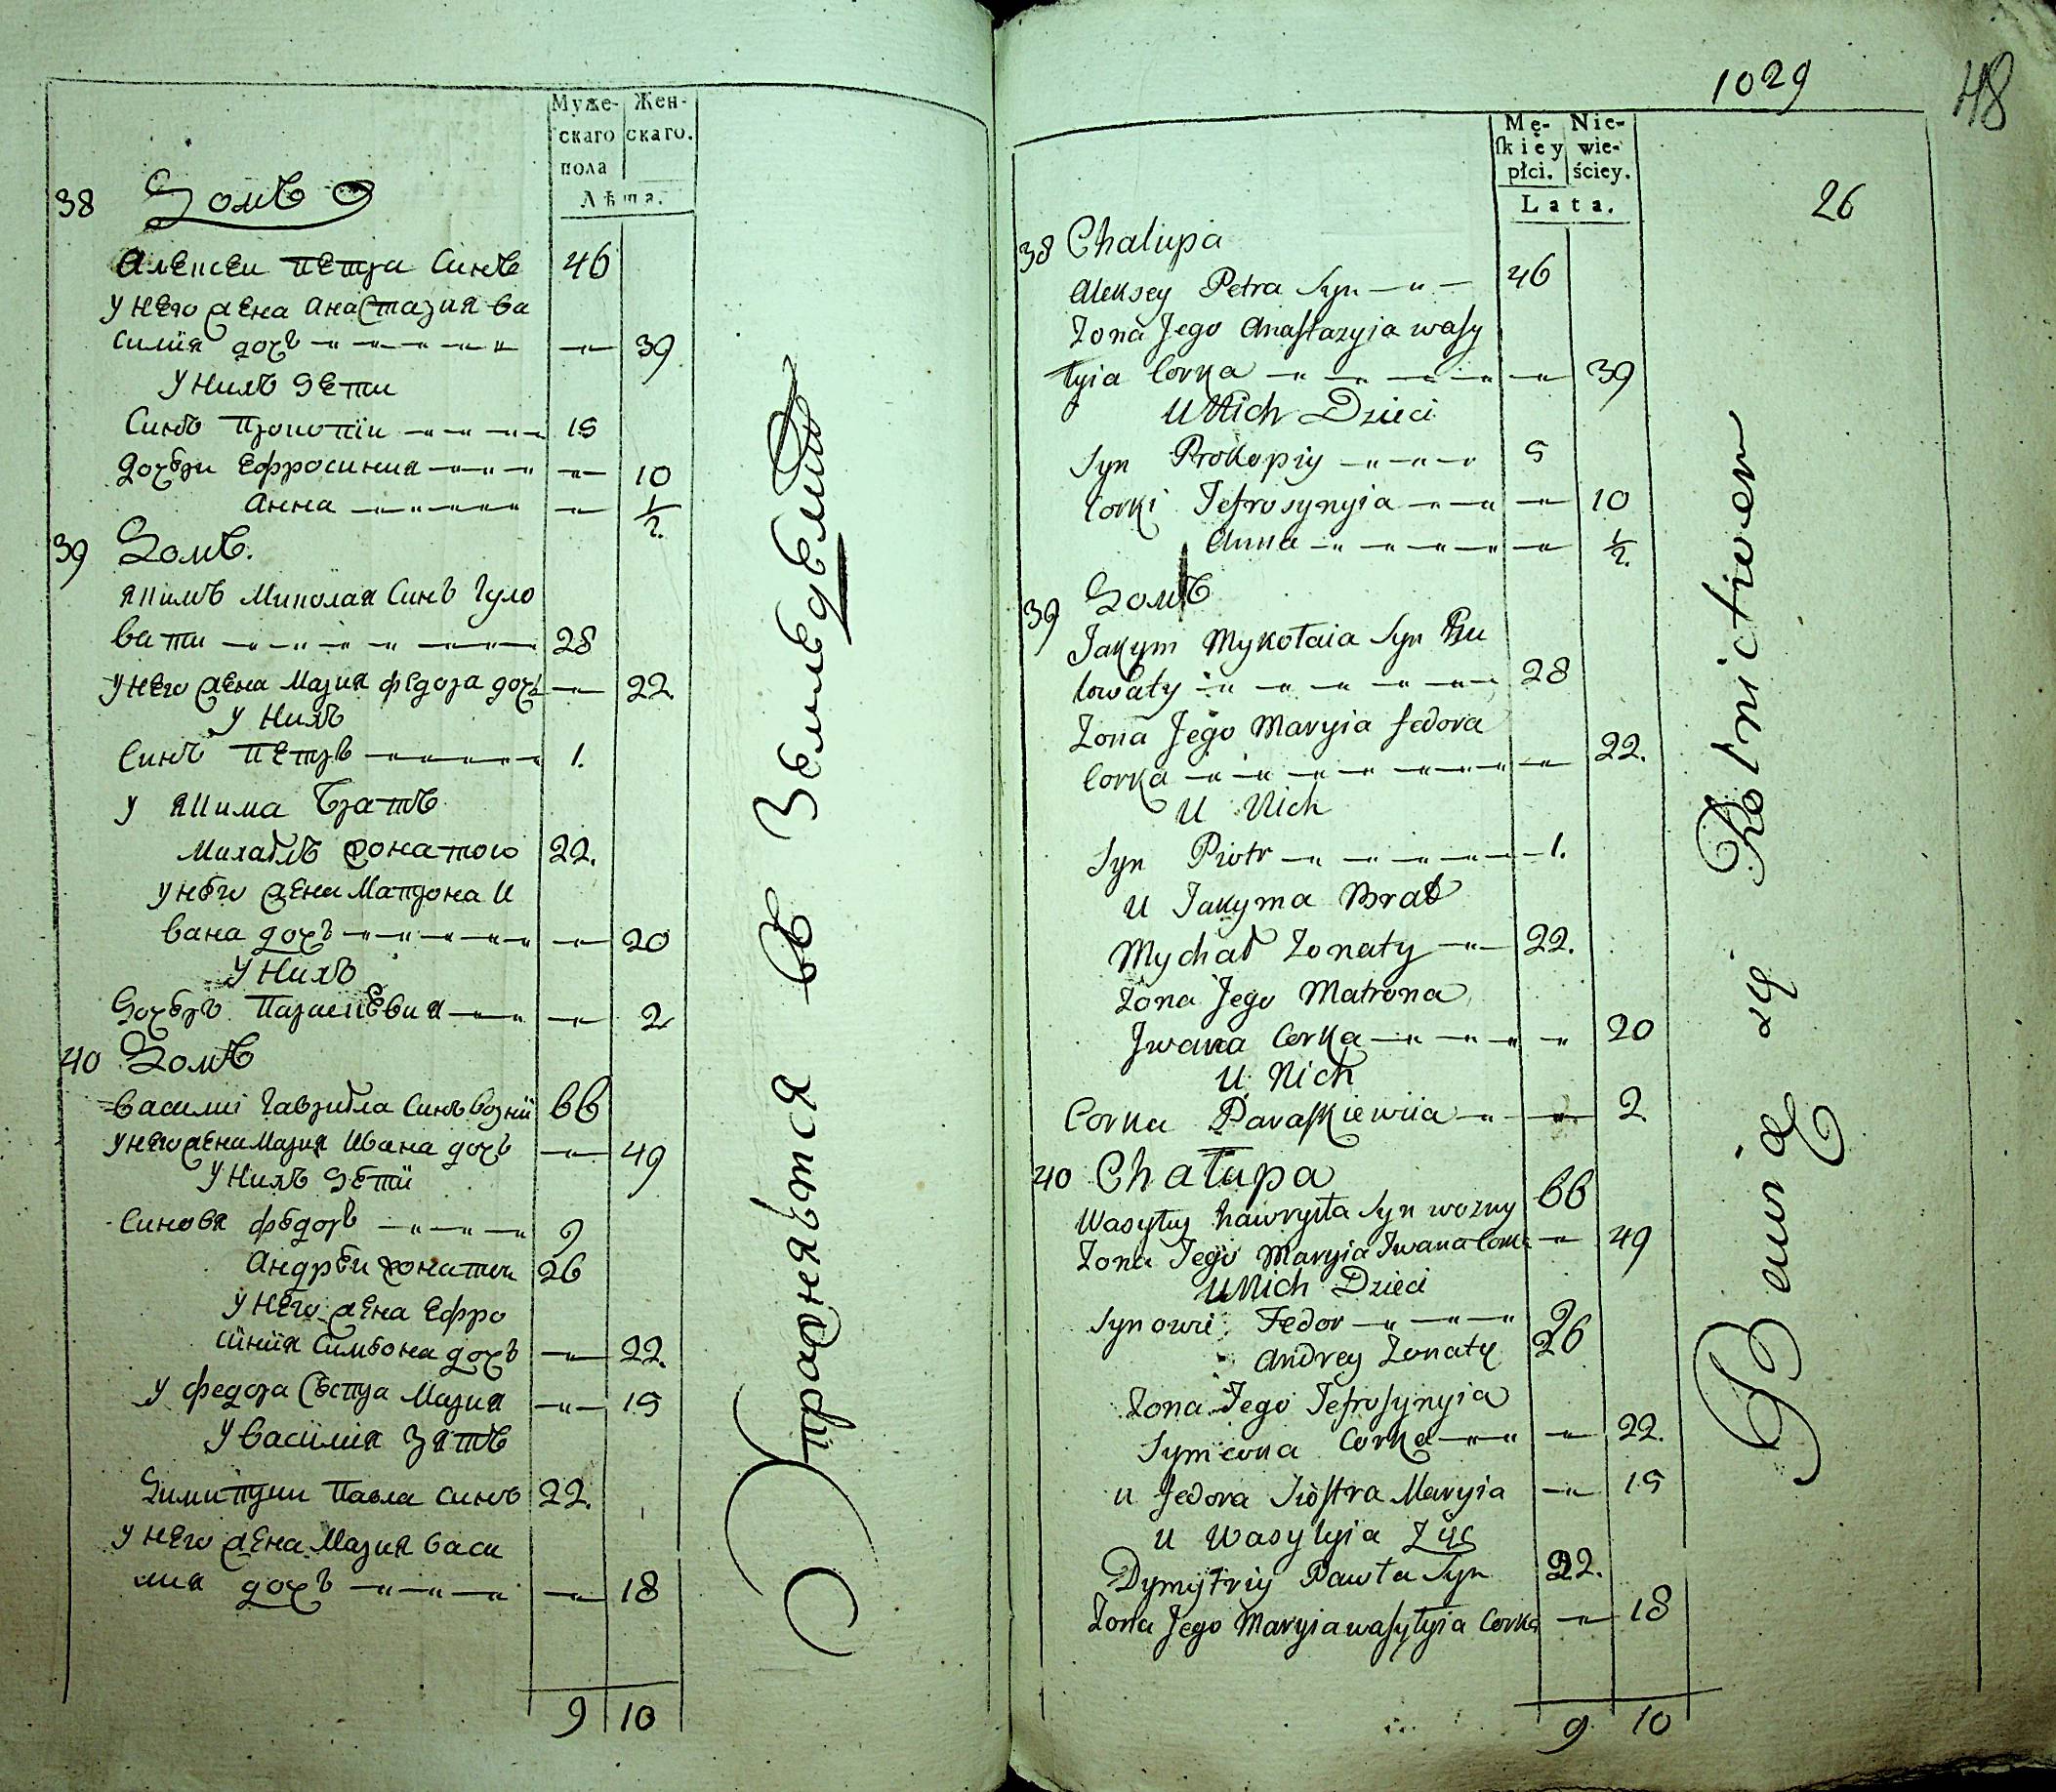 Муже-
скаго
пола
Жен-
скаго.
Лѣта.
38 Домъ
Алексеи Петра Синъ 46
У него жена Анастазия Ва
силия дочъ 39
У нихъ Дети
Синъ Прокопіи 15
Дочери Ефросиния 10
Анна 1/2.
39 Домъ.
Якимъ Миколая Синъ Гуло
вати 28
У него жена Мария Федора дочъ 22.
У нихъ
Синъ Петръ 1.
У Якима Братъ
Михаилъ жонатою 22.
У него жена Матрона И
вана дочъ 20
У нихъ
Дочеръ Параскевия 2
40 Домъ
Василиі Гавриила Синъ Возниі 66
У него жена Мария Ивана дочъ 49
У нихъ Дети
Синовя Федоръ 9
Андреи жонатии 26
У него жена Ефро
синия Симеона дочъ 22.
У Федора Сестра Мария 15
У Василия Зять
Димитрии Павла Синъ 22.
У него жена Мария Васи
лия дочъ 18
9 10
Упражняются въ Земледелии
1029
48
26
Mę-
ſkiey
płci.
Nie-
wie-
ściey.
Lata.
38 Chalupa
Aleksey Petra Syn 46
Zona Jego Anastazyia Wasy
lyia Corka 39
U Nich Dzieci
Syn Prokopiy 5
Corki Jefrosynyia 10
Anna 1/2.
39 Домъ
Jakym Mykołaia Syn Hu
lowaty 28
Zona Jego Maryia Fedora
Corka 22.
U Nich
Syn Piotr 1.
U Jakyma Brat
Mychał Zonaty 22.
Zona Jego Matrona
Jwana Corka 20
U Nich
Corka Paraskiewiia 2
40 Chałupa
Wasyłuy Hawryła Syn Wozny 66
Zona Jego Maryia Jwana Corka 49
U Nich Dzieci
Synowie Fedor 9
Andrey Zonaty 26
Zona Jego Jefrosynyia
Symeona Corka 22.
u Fedora Siostra Maryia 15
u Wasylyia Zięć
Dymytriy Pawła Syn 22.
Zona Jego Maryia Wasylyia Corka 18
9 10
Bawią się Rolnictwem